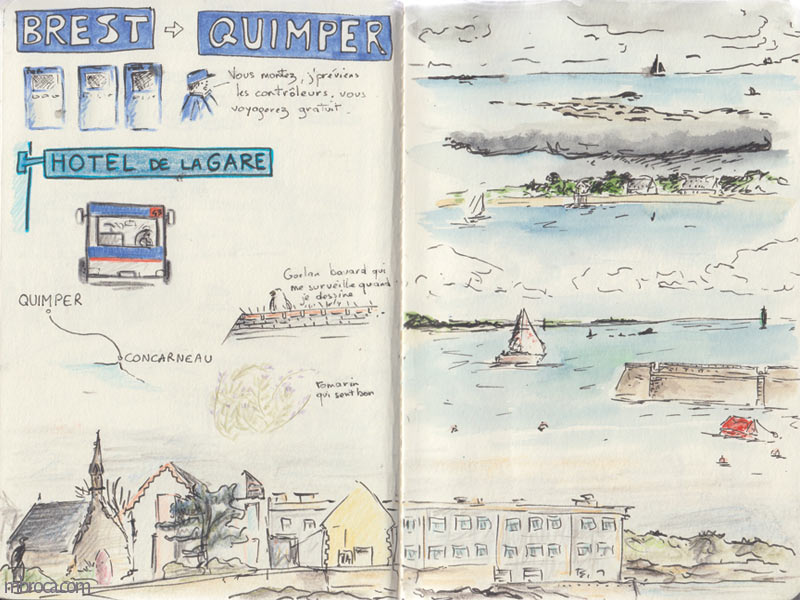 BREST ⇨ QUIMPER
Vous montez, j'préviens
les contrôleurs, vous
voyagerez gratuit.
HOTEL DE LA GARE
53
Goelan bavard qui
me surveille quand
je dessine
QUIMPER
CONCARNEAU
Romarin
qui sent bon
moroca.com